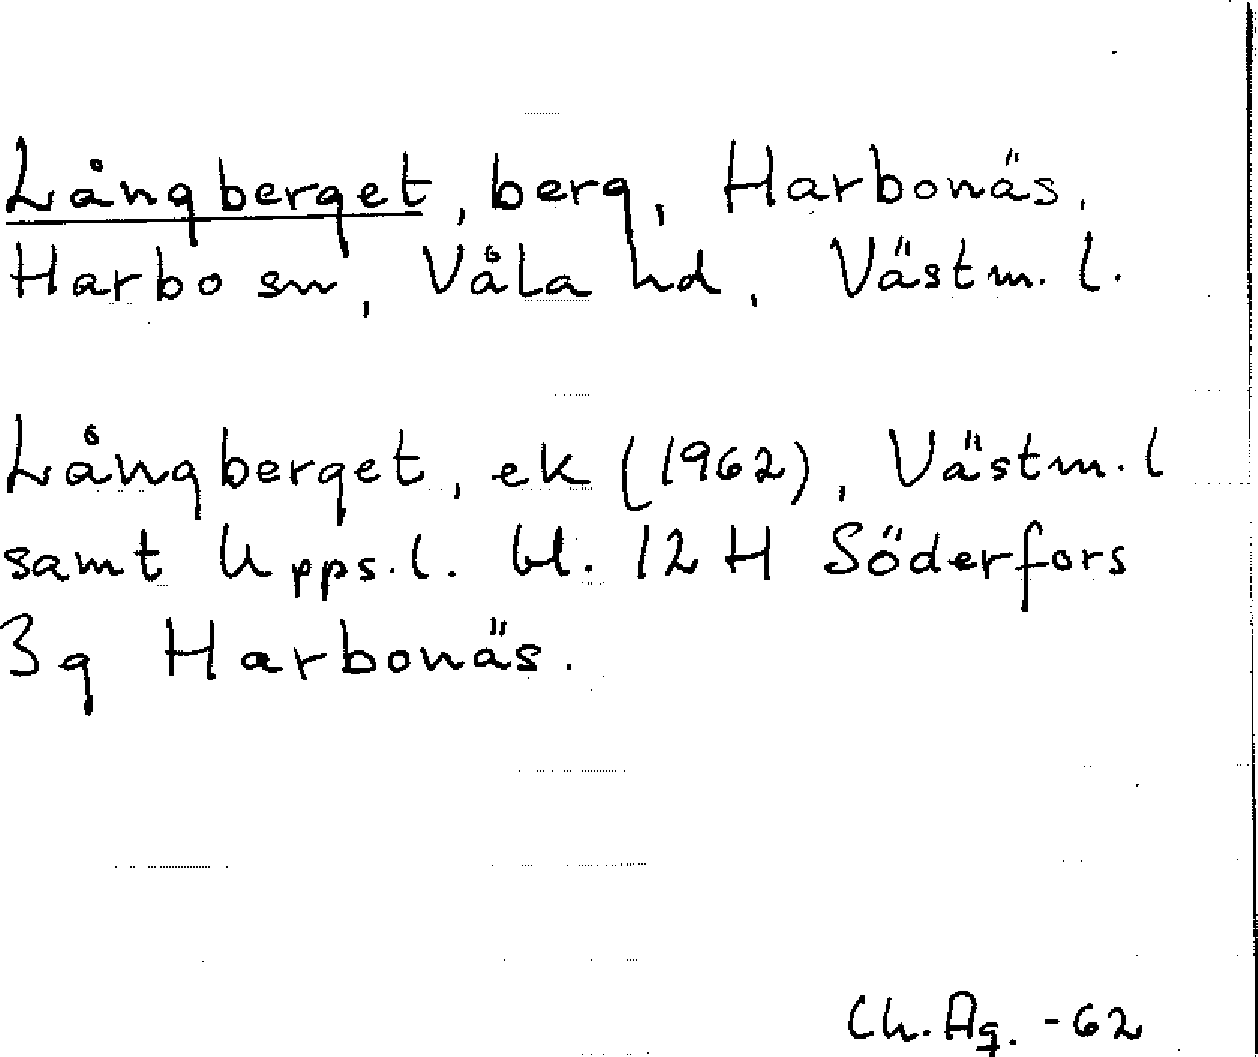 Långberget, berg, Harbonäs,
Harbo sn, Våla hd, Västm. l.
Långberget, ek (1962), Västm. l
samt Upps. l. bl. 12 H Söderfors
3g Harbonäs.
Ch. Ag. -62